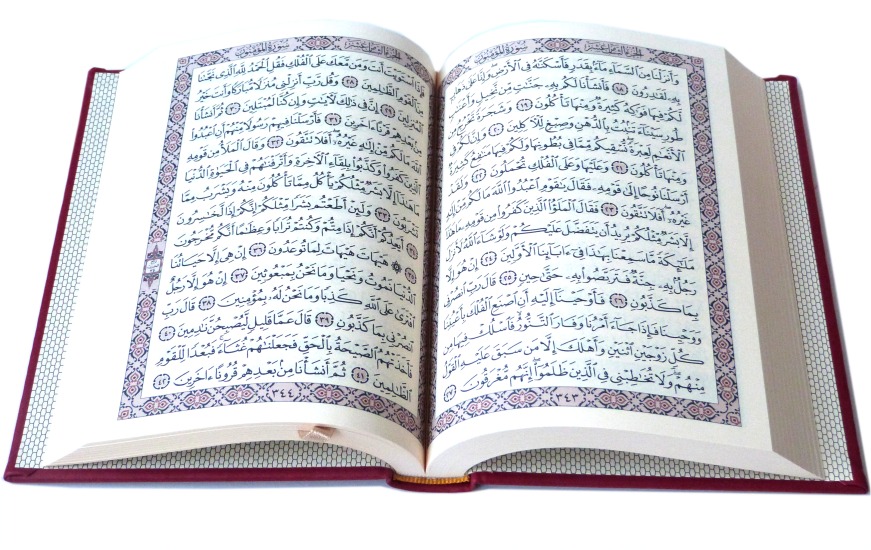 الجزء الثامن عشر سورة المؤمنون
وَأَنزَلْنَا مِنَ ٱلسَّمَآءِ مَآءًۢ بِقَدَرٍ فَأَسْكَنَّٰهُ فِى ٱلْأَرْضِ وَإِنَّا عَلَىٰ ذَهَابٍۭ
بِهِۦ لَقَٰدِرُونَ ١٨ فَأَنشَأْنَا لَكُم بِهِۦ جَنَّٰتٍ مِّن نَّخِيلٍ وَأَعْنَٰبٍ
لَّكُمْ فِيهَا فَوَٰكِهُ كَثِيرَةٌ وَمِنْهَا تَأْكُلُونَ ١٩ وَشَجَرَةً تَخْرُجُ مِن
طُورِ سَيْنَآءَ تَنۢبُتُ بِٱلدُّهْنِ وَصِبْغٍ لِّلْءَاكِلِينَ ٢٠ وَإِنَّ لَكُمْ فِى
ٱلْأَنْعَٰمِ لَعِبْرَةً نُّسْقِيكُم مِّمَّا فِى بُطُونِهَا وَلَكُمْ فِيهَا مَنَٰفِعُ كَثِيرَةٌ
وَمِنْهَا تَأْكُلُونَ ٢١ وَعَلَيْهَا وَعَلَى ٱلْفُلْكِ تُحْمَلُونَ ٢٢ وَلَقَدْ
أَرْسَلْنَا نُوحًا إِلَىٰ قَوْمِهِۦ فَقَالَ يَٰقَوْمِ ٱعْبُدُوا۟ ٱللَّهَ مَا لَكُم مِّنْ إِلَٰهٍ
غَيْرُهُۥٓ أَفَلَا تَتَّقُونَ ٢٣ فَقَالَ ٱلْمَلَؤُا۟ ٱلَّذِينَ كَفَرُوا۟ مِن قَوْمِهِۦ مَا هَٰذَآ
إِلَّا بَشَرٌ مِّثْلُكُمْ يُرِيدُ أَن يَتَفَضَّلَ عَلَيْكُمْ وَلَوْ شَآءَ ٱللَّهُ لَأَنزَلَ
مَلَٰٓئِكَةً مَّا سَمِعْنَا بِهَٰذَا فِىٓ ءَابَآئِنَا ٱلْأَوَّلِينَ ٢٤ إِنْ هُوَ إِلَّا
رَجُلٌۢ بِهِۦ جِنَّةٌ فَتَرَبَّصُوا۟ بِهِۦ حَتَّىٰ حِينٍ ٢٥ قَالَ رَبِّ ٱنصُرْنِى
بِمَا كَذَّبُونِ ٢٦ فَأَوْحَيْنَآ إِلَيْهِ أَنِ ٱصْنَعِ ٱلْفُلْكَ بِأَعْيُنِنَا
وَوَحْيِنَا فَإِذَا جَآءَ أَمْرُنَا وَفَارَ ٱلتَّنُّورُ فَٱسْلُكْ فِيهَا مِن
كُلٍّ زَوْجَيْنِ ٱثْنَيْنِ وَأَهْلَكَ إِلَّا مَن سَبَقَ عَلَيْهِ ٱلْقَوْلُ
مِنْهُمْ وَلَا تُخَٰطِبْنِى فِى ٱلَّذِينَ ظَلَمُوٓا۟ إِنَّهُم مُّغْرَقُونَ ٢٧
٣٤٣
الجزء الثامن عشر سورة المؤمنون
فَإِذَا ٱسْتَوَيْتَ أَنتَ وَمَن مَّعَكَ عَلَى ٱلْفُلْكِ فَقُلِ ٱلْحَمْدُ لِلَّهِ ٱلَّذِى نَجَّىٰنَا
مِنَ ٱلْقَوْمِ ٱلظَّٰلِمِينَ ٢٨ وَقُل رَّبِّ أَنزِلْنِى مُنزَلًا مُّبَارَكًا وَأَنتَ خَيْرُ
ٱلْمُنزِلِينَ ٢٩ إِنَّ فِى ذَٰلِكَ لَءَايَٰتٍ وَإِن كُنَّا لَمُبْتَلِينَ ٣٠ ثُمَّ أَنشَأْنَا
مِنۢ بَعْدِهِمْ قَرْنًا ءَاخَرِينَ ٣١ فَأَرْسَلْنَا فِيهِمْ رَسُولًا مِّنْهُمْ أَنِ ٱعْبُدُوا۟
ٱللَّهَ مَا لَكُم مِّنْ إِلَٰهٍ غَيْرُهُۥٓ أَفَلَا تَتَّقُونَ ٣٢ وَقَالَ ٱلْمَلَأُ مِن قَوْمِهِ
ٱلَّذِينَ كَفَرُوا۟ وَكَذَّبُوا۟ بِلِقَآءِ ٱلْءَاخِرَةِ وَأَتْرَفْنَٰهُمْ فِى ٱلْحَيَوٰةِ ٱلدُّنْيَا
مَا هَٰذَآ إِلَّا بَشَرٌ مِّثْلُكُمْ يَأْكُلُ مِمَّا تَأْكُلُونَ مِنْهُ وَيَشْرَبُ مِمَّا
تَشْرَبُونَ ٣٣ وَلَئِنْ أَطَعْتُم بَشَرًا مِّثْلَكُمْ إِنَّكُمْ إِذًا لَّخَٰسِرُونَ
٣٤ أَيَعِدُكُمْ أَنَّكُمْ إِذَا مِتُّمْ وَكُنتُمْ تُرَابًا وَعِظَٰمًا أَنَّكُم مُّخْرَجُونَ
٣٥ ۞ هَيْهَاتَ هَيْهَاتَ لِمَا تُوعَدُونَ ٣٦ إِنْ هِىَ إِلَّا حَيَاتُنَا
ٱلدُّنْيَا نَمُوتُ وَنَحْيَا وَمَا نَحْنُ بِمَبْعُوثِينَ ٣٧ إِنْ هُوَ إِلَّا رَجُلٌ
ٱفْتَرَىٰ عَلَى ٱللَّهِ كَذِبًا وَمَا نَحْنُ لَهُۥ بِمُؤْمِنِينَ ٣٨ قَالَ رَبِّ
ٱنصُرْنِى بِمَا كَذَّبُونِ ٣٩ قَالَ عَمَّا قَلِيلٍ لَّيُصْبِحُنَّ نَٰدِمِينَ ٤٠
فَأَخَذَتْهُمُ ٱلصَّيْحَةُ بِٱلْحَقِّ فَجَعَلْنَٰهُمْ غُثَآءً فَبُعْدًا لِّلْقَوْمِ
ٱلظَّٰلِمِينَ ٤١ ثُمَّ أَنشَأْنَا مِنۢ بَعْدِهِمْ قُرُونًا ءَاخَرِينَ ٤٢
٣٤٤